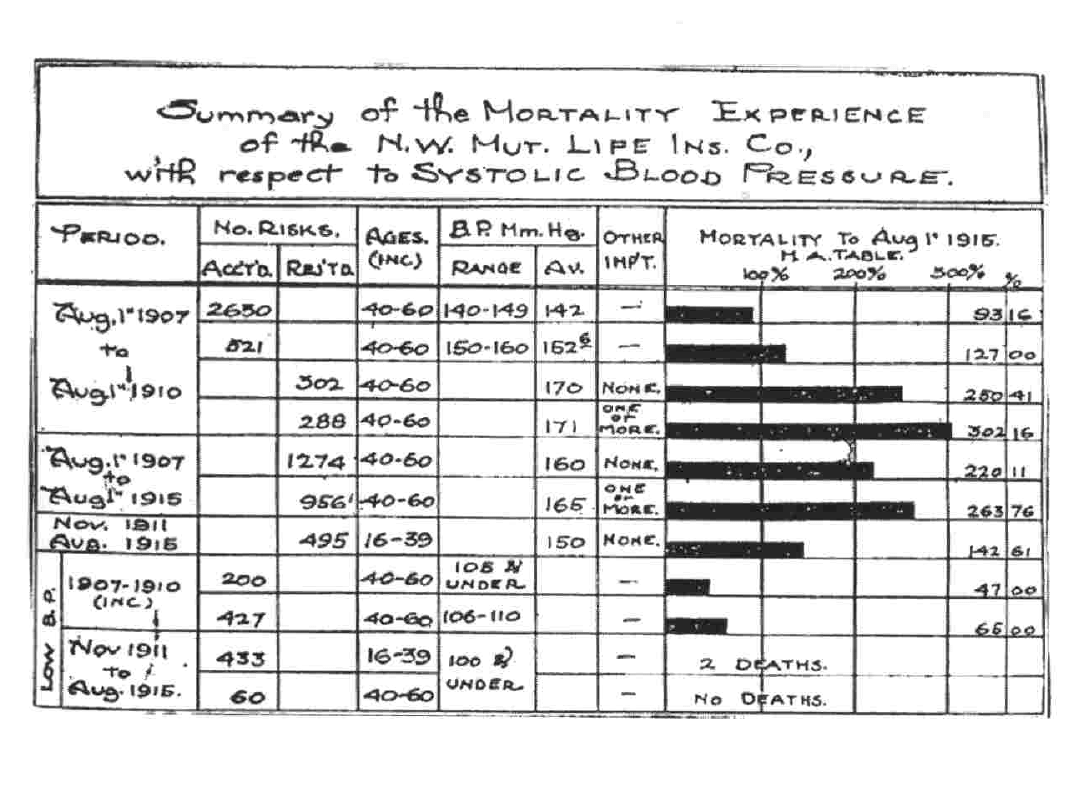 Summary of the MORTALITY EXPERIENCE
of the N.W. MUT. LIFE INS. CO.,
with respect to SYSTOLIC BLOOD PRESSURE.
PERIOD. NO. RISKS. AGES. (INC) B.P. Mm. Hg. OTHER IMP'T. MORTALITY TO Aug 1st 1915.
M. A. TABLE.
ACC'TD. REJ'TD. RANGE AV. 100% 200% 300% %
Aug. 1st 1907 to Aug. 1st 1910
2650 40-60 140-149 142 — 93 16
521 40-60 150-160 152 6 — 127 00
302 40-60 170 NONE. 250 41
288 40-60 171 ONE OR MORE. 302 16
Aug. 1st 1907 to Aug 1st 1915
1274 40-60 160 NONE. 220 11
956 40-60 165 ONE OR MORE. 263 76
Nov. 1911 Aug. 1915 495 16-39 150 NONE. 142 61
LOW B.P.
1907-1910 (INC.)
200 40-60 105 & UNDER — 47 00
427 40-60 106-110 — 00
Nov 1911 to Aug. 1915.
433 16-39 100 & UNDER — 2 DEATHS.
60 40-60 — NO DEATHS.